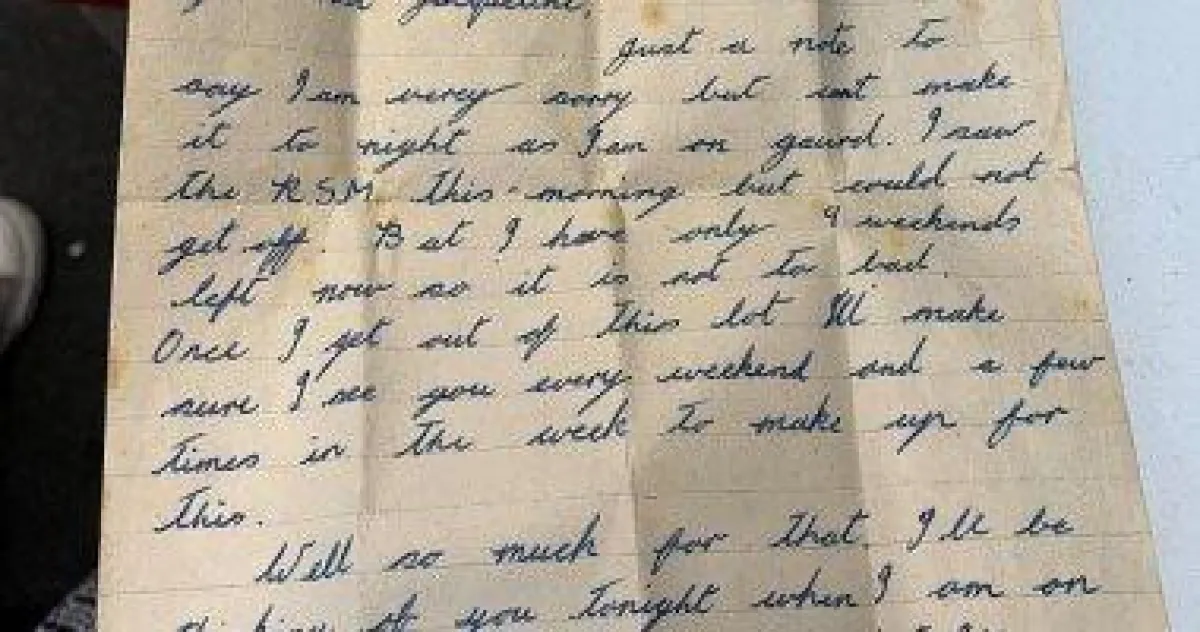 Jacqueline,
Just a note to
say I am verey sorry but cant make
it to night as I am on gaurd. I saw
the RSM this-morning but could not
get off. But I have only 9 weekends
left now so it is not to bad.
Once I get out of this lot I'll make
sure I see you every weekend and a few
times in the week to make up for
this.
Well so much for that. I'll be
thinking of you Tonight when I am on